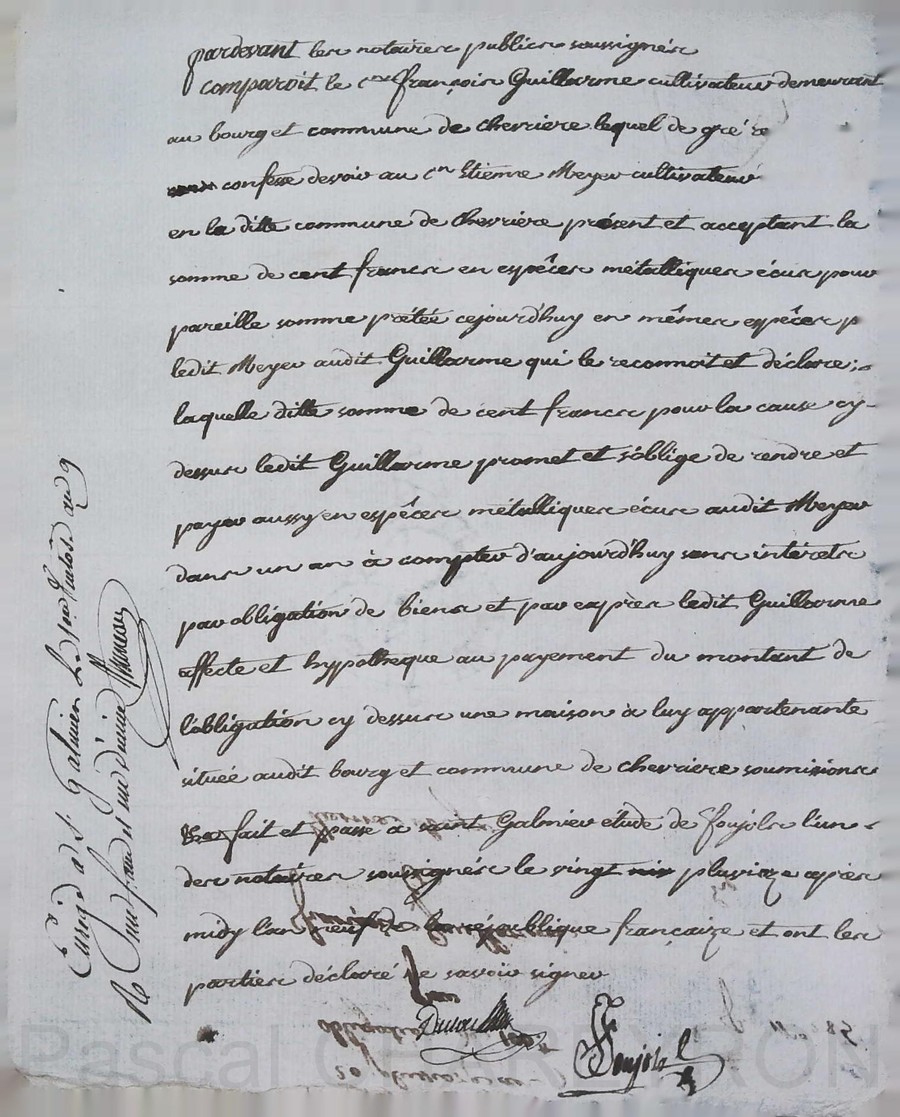 pardevant les notaires publics soussignés
comparoit le cen françois Guillarme cultivateur demeurant
au bourg et commune de chevriere lequel de gré
confesse devoir au cn Etienne Meyer cultivateur
en la ditte commune de Chevriere présent et acceptant la
somme de cent francs en espêces métalliques écus pour
pareille somme prêtée cejourd'huy en mêmes espêces p
ledit Meyer audit Guillarme qui le reconnoit et déclare;
laquelle ditte somme de cent francs pour la cause cy-
dessus ledit Guillarme promet et s'oblige de rendre et
payer aussy en espêces métalliques écus audit Meyer
dans un an à compter d'aujourd'huy sans intérets
par obligation de biens et par exprès ledit Guillarme
affecte et hypotheque au payement du montant de
l'obligation cy dessus une maison à luy appartenante
située audit bourg et commune de chevriere soumissions
fait et passé a saint Galmier etude de Foujols l'un
des notaires soussignés le vingt pluvioze après
midy l'an neuf de la république françaize et ont les
parties déclaré ne savoir signer
Foujols
Enrgé à St Galmier le pluviose an 9
Pascal CHAMBEYRON